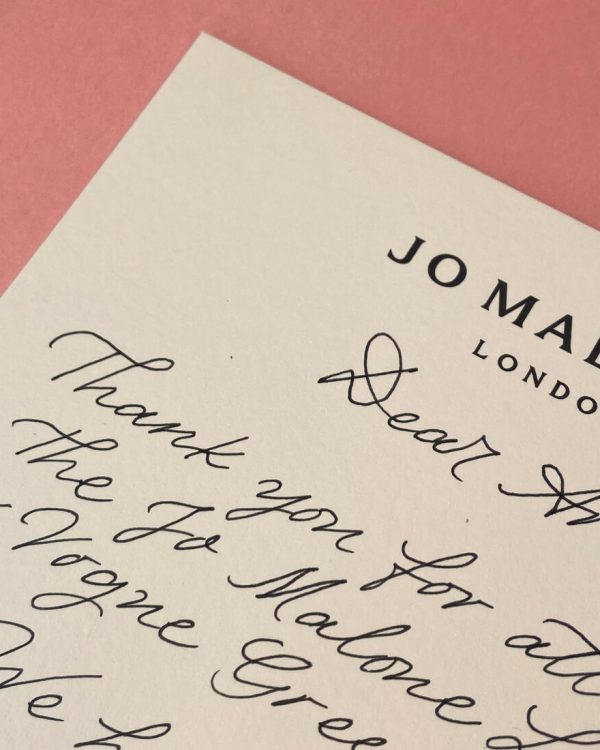 JO MAL
LONDO
Dear A
Thank you for att
the Jo Malone L
Vogue Gree
We h